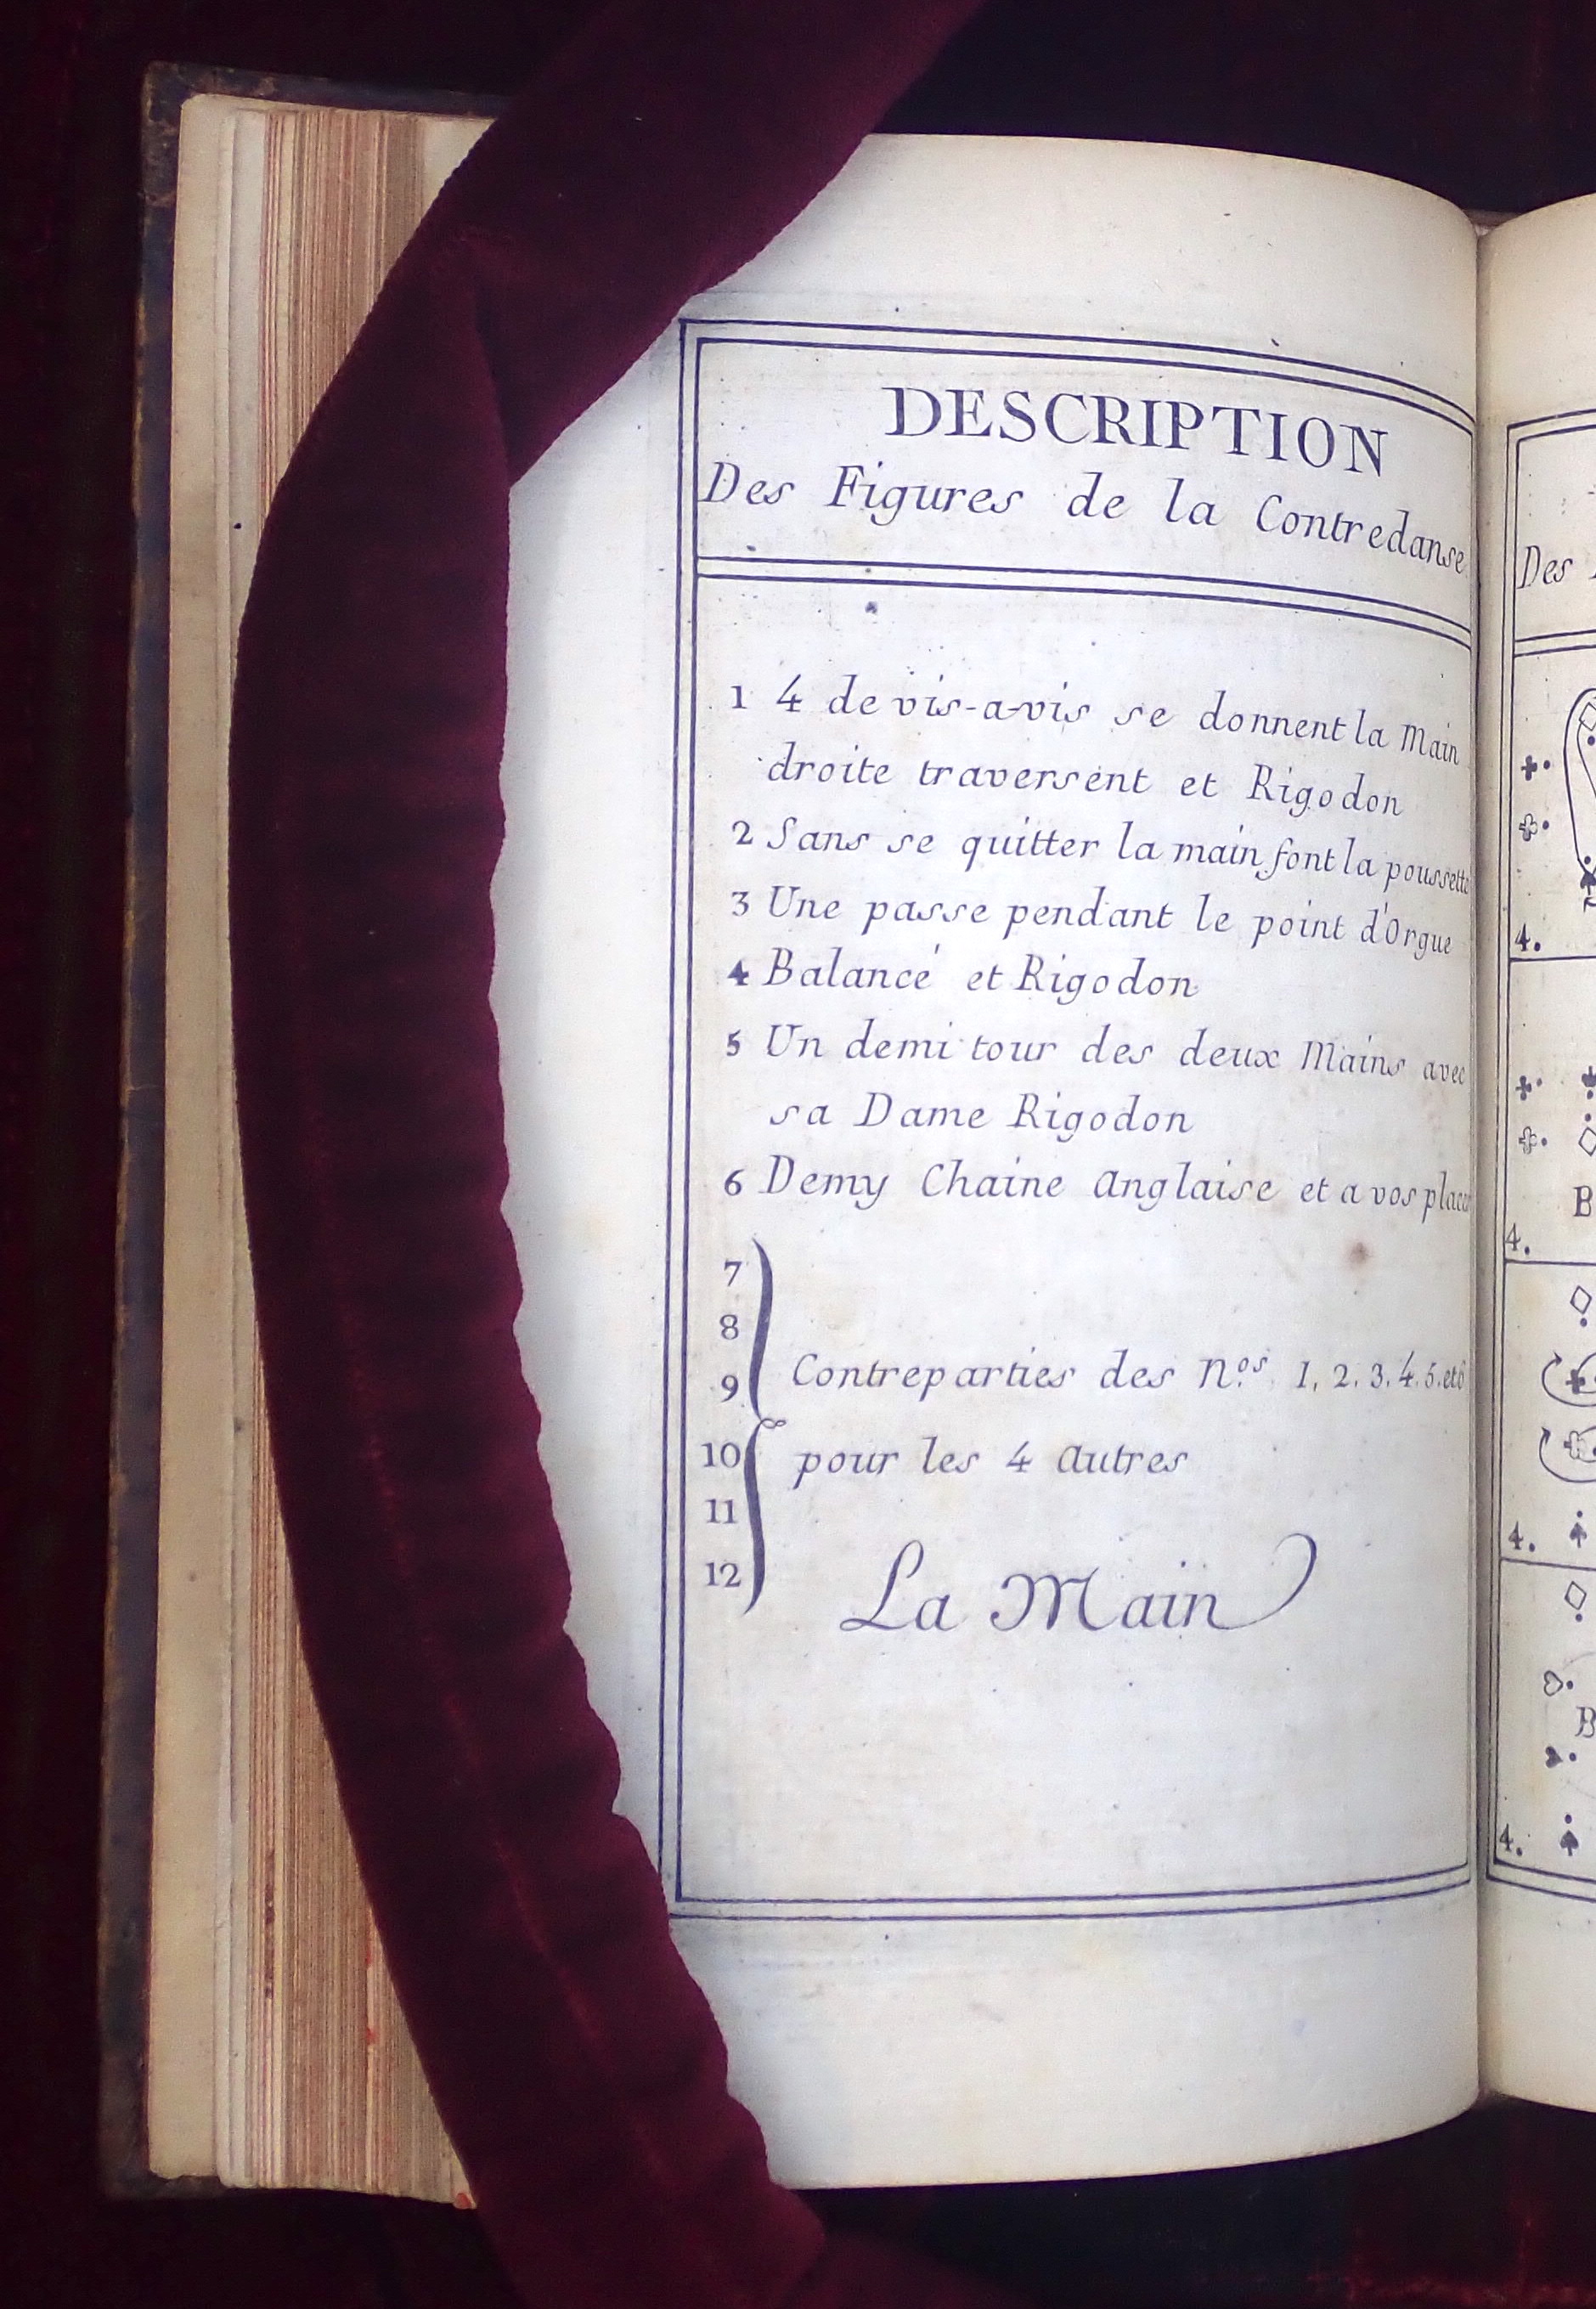 DESCRIPTION
Des Figures de la Contredanse
1 4 de vis-a-vis se donnent la Main
droite traversent et Rigodon
2 Sans se quitter la main font la poussette
3 Une passe pendant le point d'Orgue
4 Balancé et Rigodon
5 Un demi tour des deux Mains avec
sa Dame Rigodon
6 Demy Chaine Anglaise et a vos places
7
8
9 Contreparties des N.os 1, 2. 3. 4. 5. et 6
10 pour les 4 Autres
11
12
La Main
Des
4.
B
4.
4.
B
4.